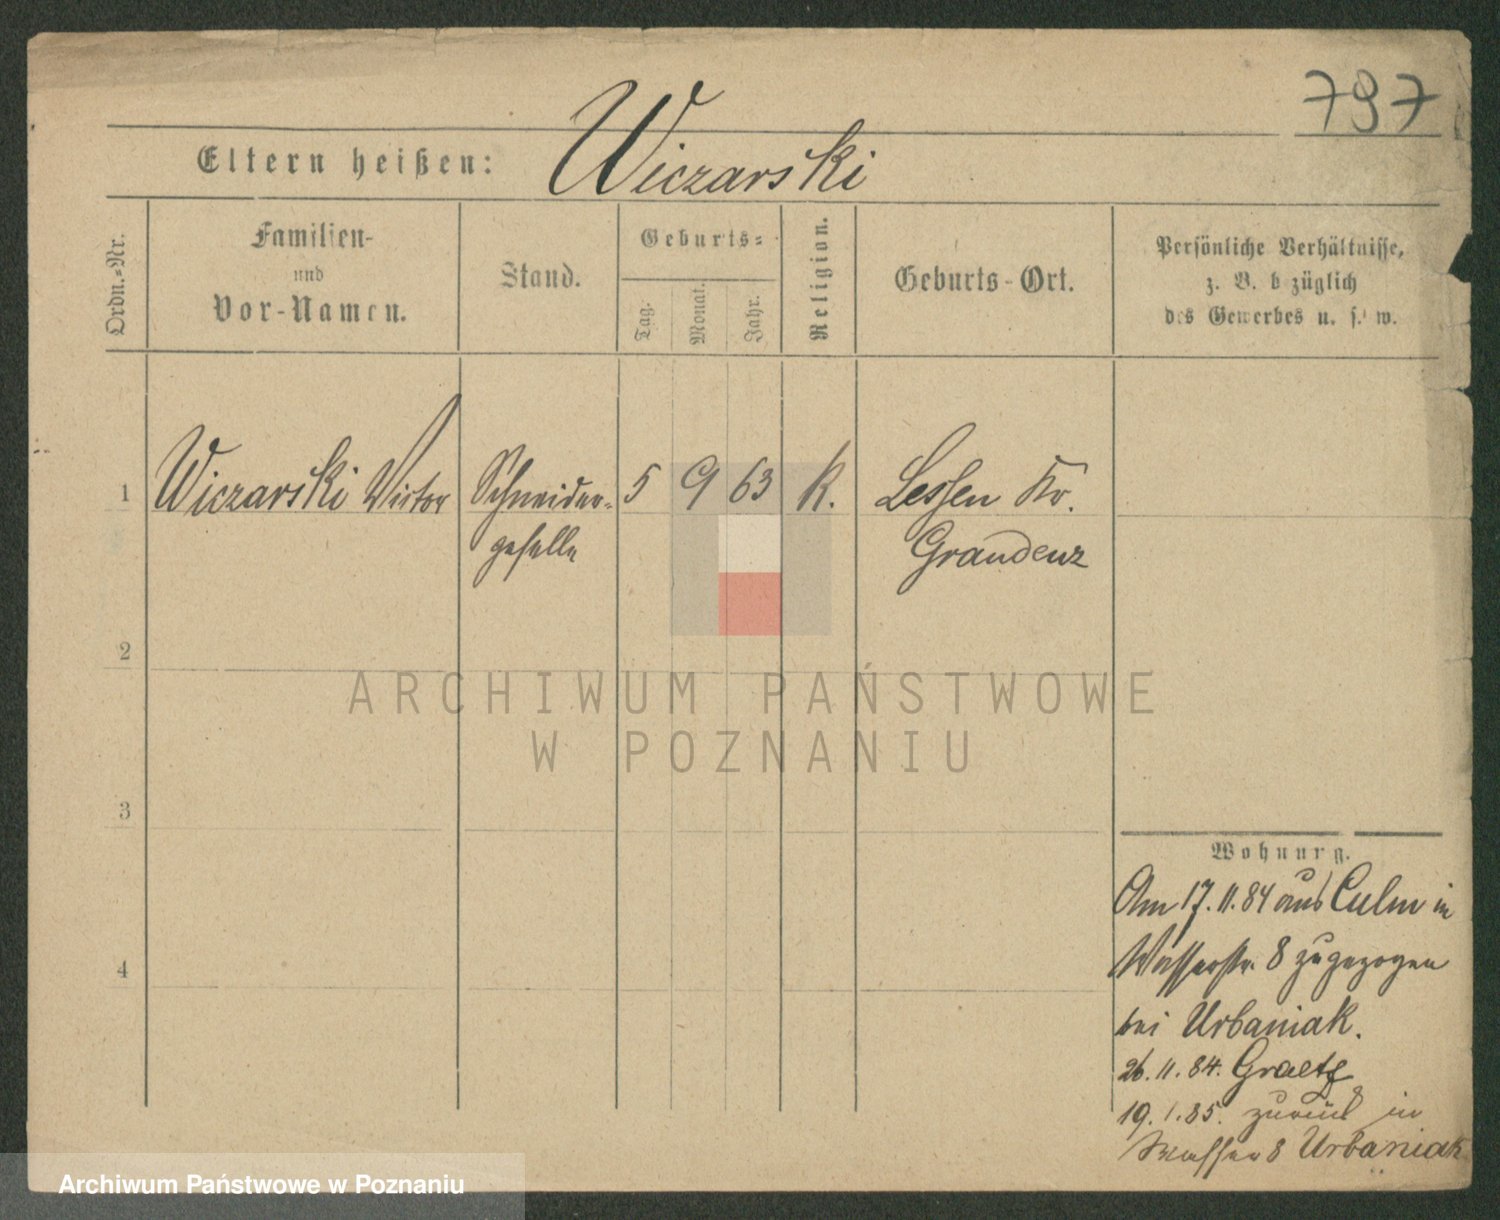 797
Eltern heißen: Wiczarski
Ordn.-Nr.
Familien-
und
Vor-Namen.
Stand.
Geburts-
Tag.
Monat.
Jahr.
Religion.
Geburts-Ort.
Persönliche Verhältnisse,
z. B. bezüglich
des Gewerbes u. s. w.
1 Wiczarski Victor Schneider- 5 9 63 K. Lessen Kr.
geselle Graudenz
2
ARCHIWUM PAŃSTWOWE
W POZNANIU
3
Wohnung.
Am 17.11.84 aus Culm in
Wasserstr. 8 zugezogen
4
bei Urbaniak.
26.11.84. Graetz
19.1.85. zurück in
Wasser 8 Urbaniak
Archiwum Państwowe w Poznaniu